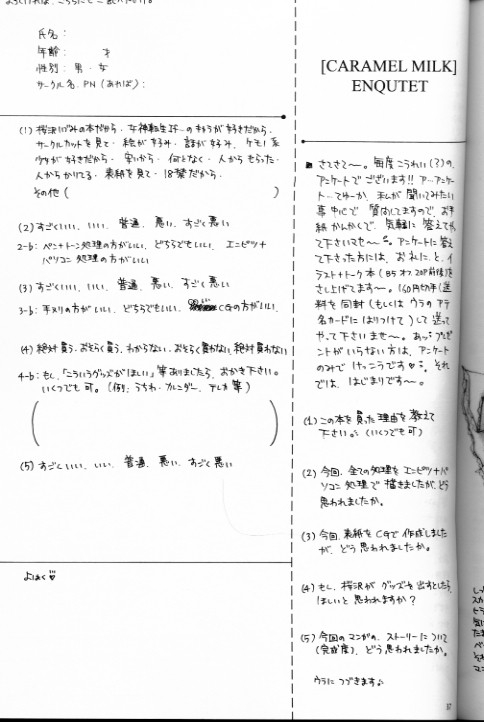 よろしければ、こちらにてご記入下さい。
氏名：
年齢：　　才
性別：男・女
サークル名．PN（あれば）：
(1) 桜沢いづみの本だから・女神転生if…のきょうが好きだから・
サークルカットを見て・絵が好み・話が好み・ケモノ系
少年が好きだから・安いから・何となく・人からもらった・
人からかりてる・表紙を見て・18禁だから・
その他（
(2) すごくいい、いい、普通、悪い、すごく悪い
2-b：ペン+トーン処理の方がいい、どちらでもいい、エンピツ+
パソコン処理の方がいい
(3) すごくいい、いい、普通、悪い、すごく悪い
3-b：手ヌリの方がいい、どちらでもいい、CGの方がいい、
(4) 絶対買う、おそらく買う、わからない、おそらく買わない、絶対買わない
4-b：もし、「こういうグッズがほしい」等ありましたら、おかき下さい。
いくつでも可。（例：うちわ・カレンダー、テレカ等）
(5) すごくいい、いい、普通、悪い、すごく悪い
よはく♡
[CARAMEL MILK]
ENQUTET
■ さてさて〜。毎度こうれい(?)の、
アンケートでございます!!ア…アンケー
ト…てゆーか、私が聞いてみたい
事中心で質問してますので、お手
紙かんかくで、気軽に答えてやっ
て下さいませ〜。アンケートに答え
て下さった方には、お礼に、と、イ
ラスト+トーク本（B5オフ．20P前後）を
さし上げてます〜。160円切手（送
料を同封（もしくはウラのアテ
名カードにはりつけて）して送って
やって下さいませ〜。あっ：プレゼ
ントがいらない方は、アンケート
のみでけっこうです♡：。それ
では、はじまりです〜。
(1) この本を買った理由を教えて
下さい。（いくつでも可）
(2) 今回、全ての処理をエンピツ+パ
ソコン処理で描きましたが、どう
思われましたか。
(3) 今回、表紙をCGで作成しました
が、どう思われましたか。
(4) もし、桜沢がグッズを出すとしたら、
ほしいと思われますか？
(5) 今回のマンガの、ストーリーについて
（完成度）、どう思われましたか。
ウラにつづきます♪
37